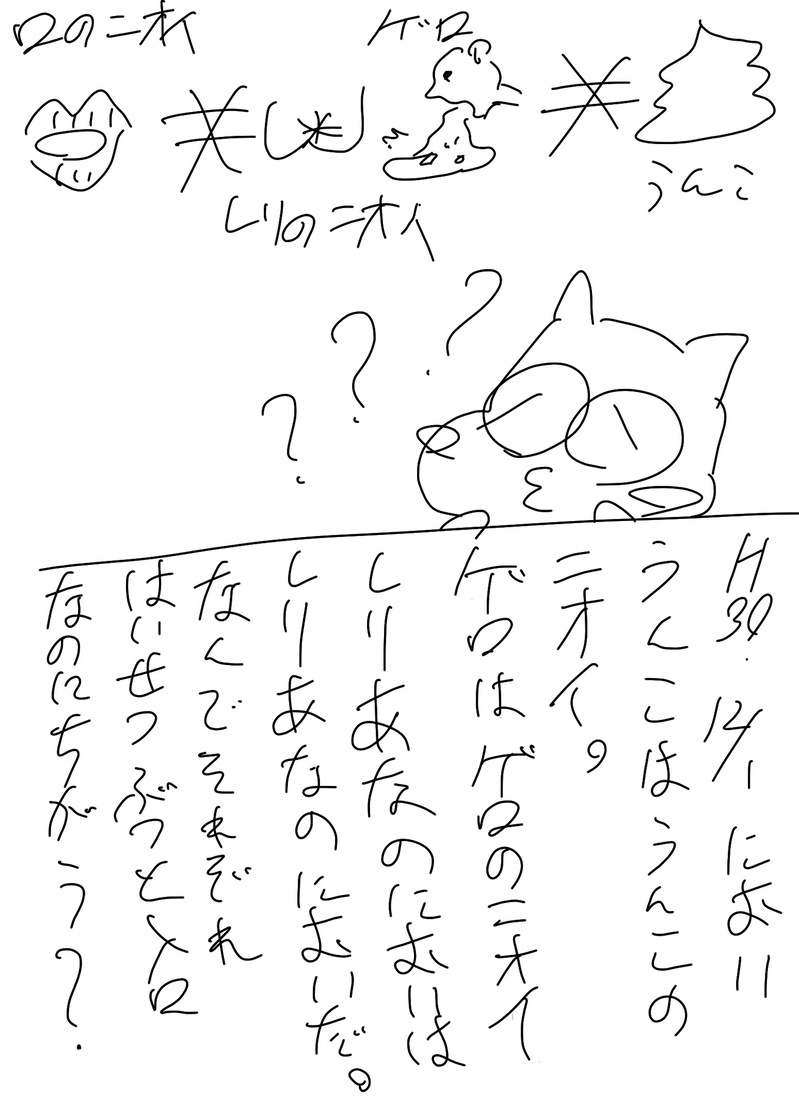 口のニオイ
ゲロ
しりのニオイ
うんこ
？？？
H30. 12/1 におい
うんこはうんこの
ニオイ。
ゲロはゲロのニオイ
しりあなのにおいは
しりあなのにおいだ。
なんでそれぞれ
はいせつぶつと入口
なのにちがう？